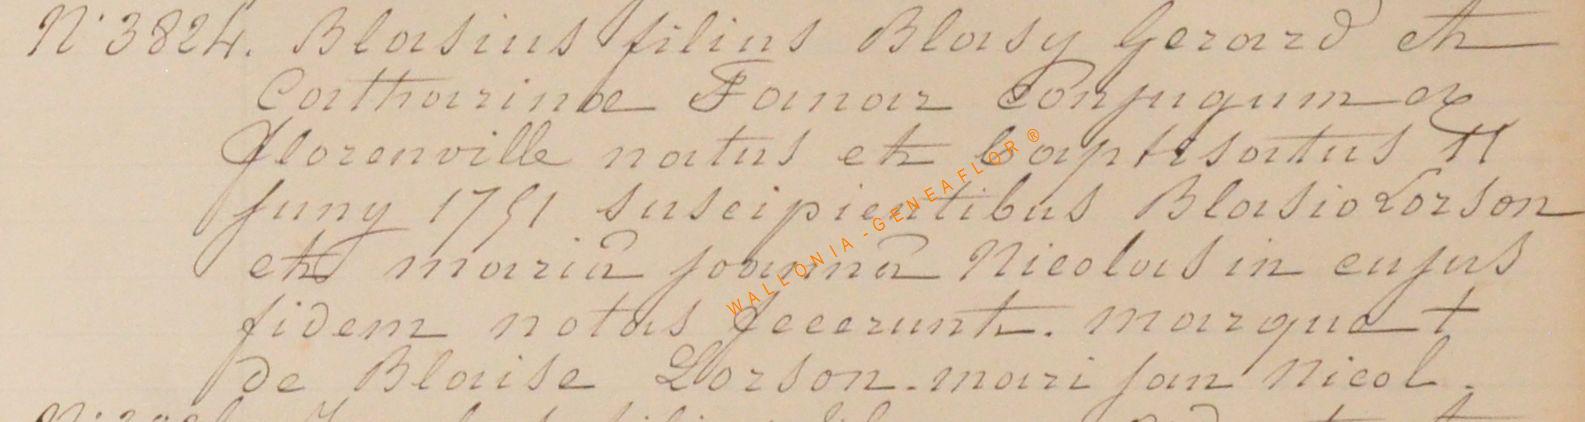 N° 3824. Blasius filius Blasy Gerard et
Catharinæ Fanar Conjugum ex
florenville natus et baptisatus 11
juny 1751 suscipientibus Blasio Lorson
et mariâ joannâ Nicolas in cujus
fidem notas fecerunt. marque +
de Blaise Lorson. mari jan Nicol.
WALLONIA - GENEAFLOR ®